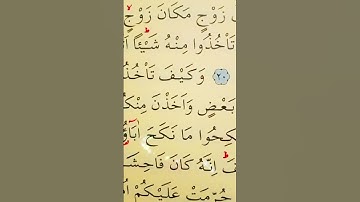 زَوْجٍ مَكَانَ زَوْجٍۙ
تَأْخُذُوا مِنْهُ شَيْـًٔاۜ اَتَ
﴿٢٠﴾ وَكَيْفَ تَأْخُذُ
بَعْضٍ وَاَخَذْنَ مِنْكُ
ـكِحُوا مَا نَكَحَ اٰبَٓاؤُ
ـفَۜ اِنَّهُ كَانَ فَاحِشَـ
حُرِّمَتْ عَلَيْكُمْ اُمَّ